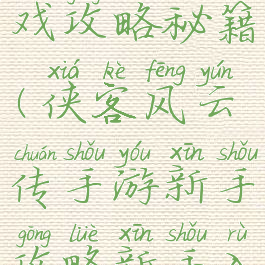 戏攻略秘籍
xiá kè fēng yún
(侠客风云
chuán shǒu yóu xīn shǒu
传手游新手
gōng lüè xīn shǒu rù
攻略新手入